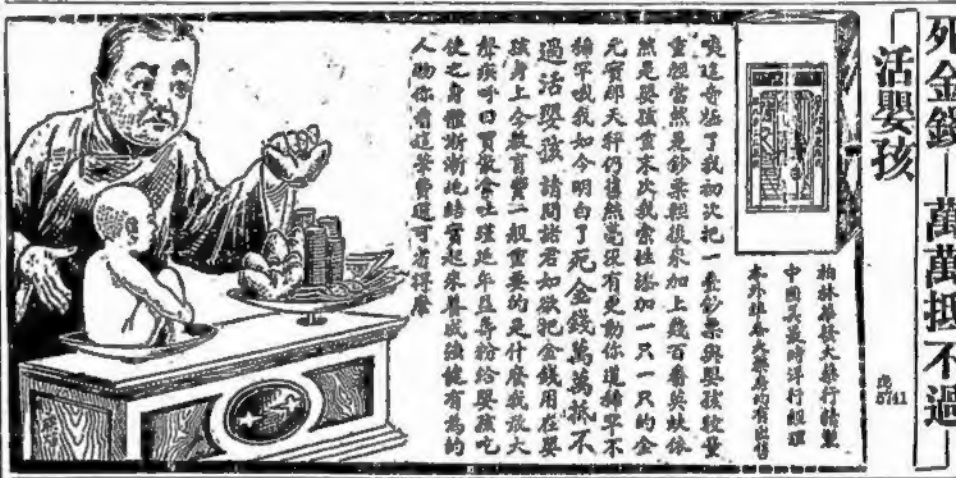 死金錢—萬萬抵不過—
—活嬰孩
虎
5741
柏林華發大藥行精製
中國天最時洋行經理
本外埠各大藥房均有出售
咦這奇極了我初次把一叠鈔票與嬰孩較量
重輕當然是鈔票輕後來加上幾百番英蚨依
然是嬰孩重末次我索性添加一只一只的金
元寶那天秤仍舊然毫沒有更動你道稀罕不
稀罕哦我如今明白了死金錢萬萬抵不
過活嬰孩 請問諸君如欲把金錢用在嬰
孩身上合教育費二般重要的是什麼我放大
聲疾呼曰買散拿吐瑾延年益壽粉給嬰孩吃
使之身體漸漸地結實起來養成強健有爲的
人物你看這筆費還可省得麼